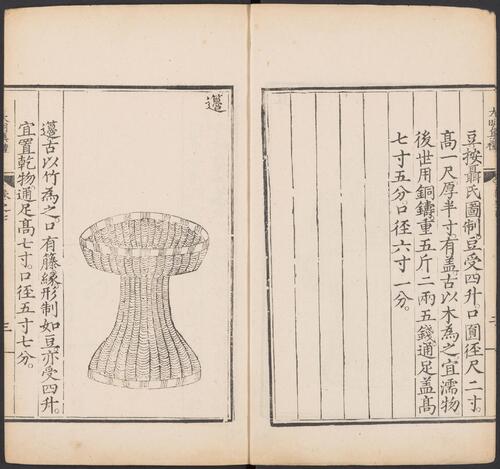 豆按聶氏圖制。豆受四升。口圓徑尺二寸。
高一尺厚半寸。有盖古以木為之宜濡物
後世用銅鑄重五斤二兩五錢通足盖高
七寸五分口徑六寸一分。
籩
籩古以竹為之。口有籐緣形制如豆亦受四升。
宜置乾物通足高七寸。口徑五寸七分。
三